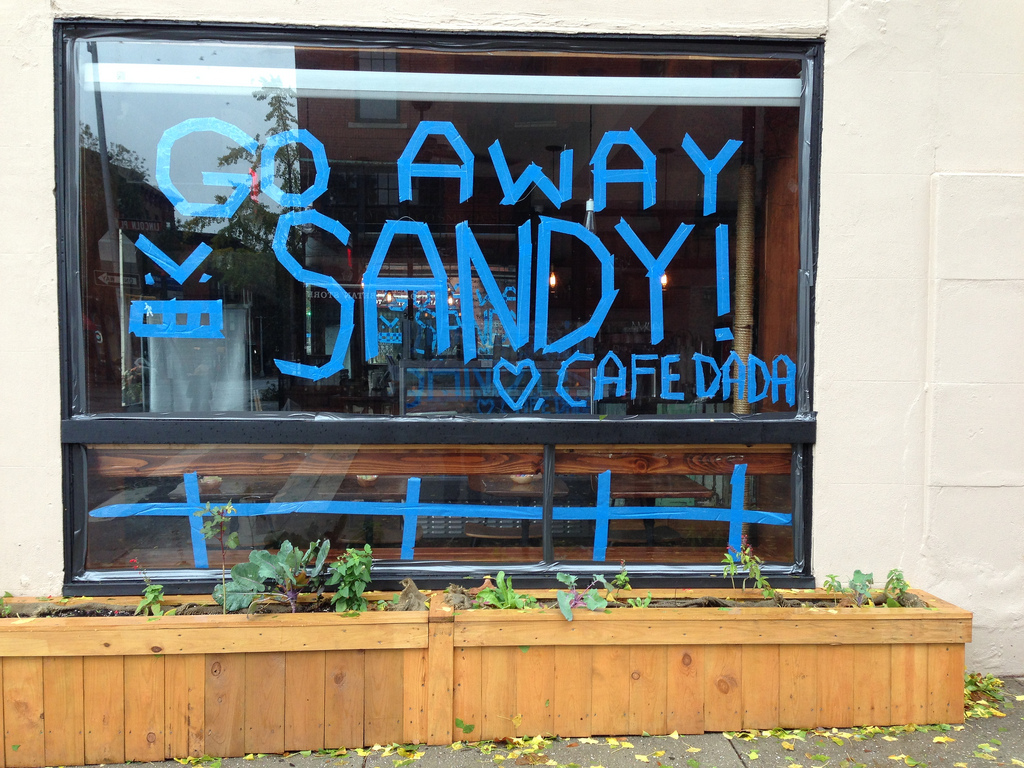 GO AWAY
SANDY!
♡, CAFE DADA